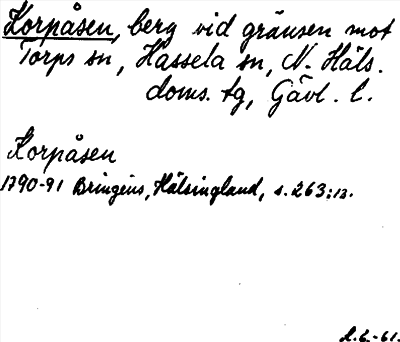 Korpåsen, berg vid gränsen mot
Torps sn, Hassela sn, N. Häls.
doms. tg, Gävl. l.
Korpåsen
1790-91 Bringéus, Hälsingland, s. 263:12.
L.L-61.